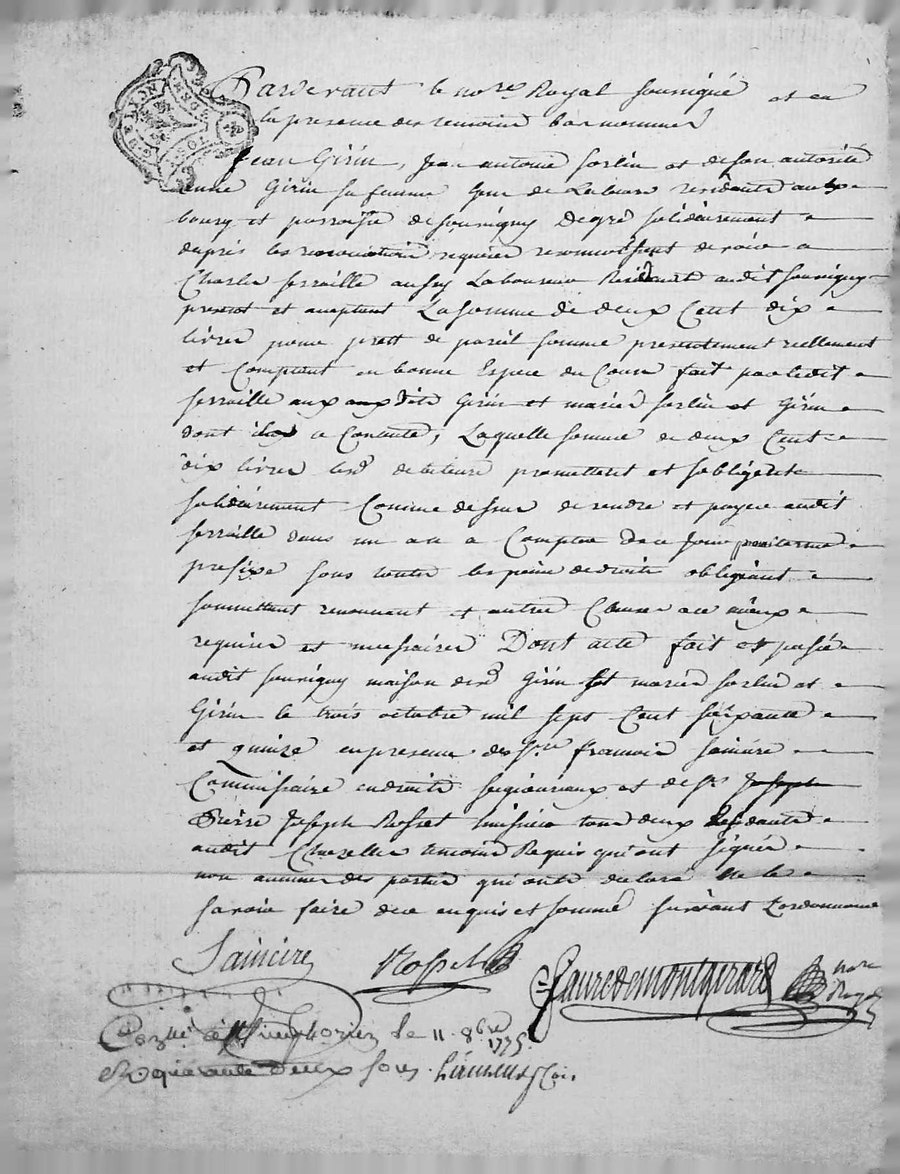 G. DE LYON
Pardevant le no.re Royal soussigné et en
la presence des temoins bas nommés
Jean Girin, Jean antoine sorlin et de son autorité
anne Girin sa femme Gens de Labeurs residants aux
bourg et parroisse de souvigny De gré solidairement
d'apres les renonciations requises reconnoissent devoir a
Charles serraille aussy Laboureur Residant audit souvigny
present et acceptant La somme de deux Cent dix
livres pour prest de pareil somme presentement reellement
et Comptant en bonne Espece du Cours fait par ledit
serraille aux dits Girin et mariés sorlin et Girin
dont a Contente, Laquelle somme de deux Cent
dix livres lesd. debiteurs promettent et sobligent
solidairement Comme dessus de rendre et payer audit
serraille dans un an a Compter de ce jour pour terme
prefixe sous toutes les peines de droits obligeant
soumettant renonçant et autres Clauses
requises et necessaires Dont acte fait et passé
audit souvigny maison desd. Girin et mariés sorlin et
Girin le trois octobre mil sept Cent soixante
et quinze en presence des Srs. francois saincire
Commissaire en droits seigneuriaux et de Sr. Joseph
Pierre Joseph Rosset huissier tous deux residants
audit Chazelles temoins Requis qui ont signés
non aucunes des parties qui ont declaré Ne le
savoir faire de ce enquis et sommé suivant Lordonnance
Saincire Rosset fauredemontgirard no.re Royal
Con.lé à St Simphorien le 11. 8bre
1775.
R. quarante deux sous.